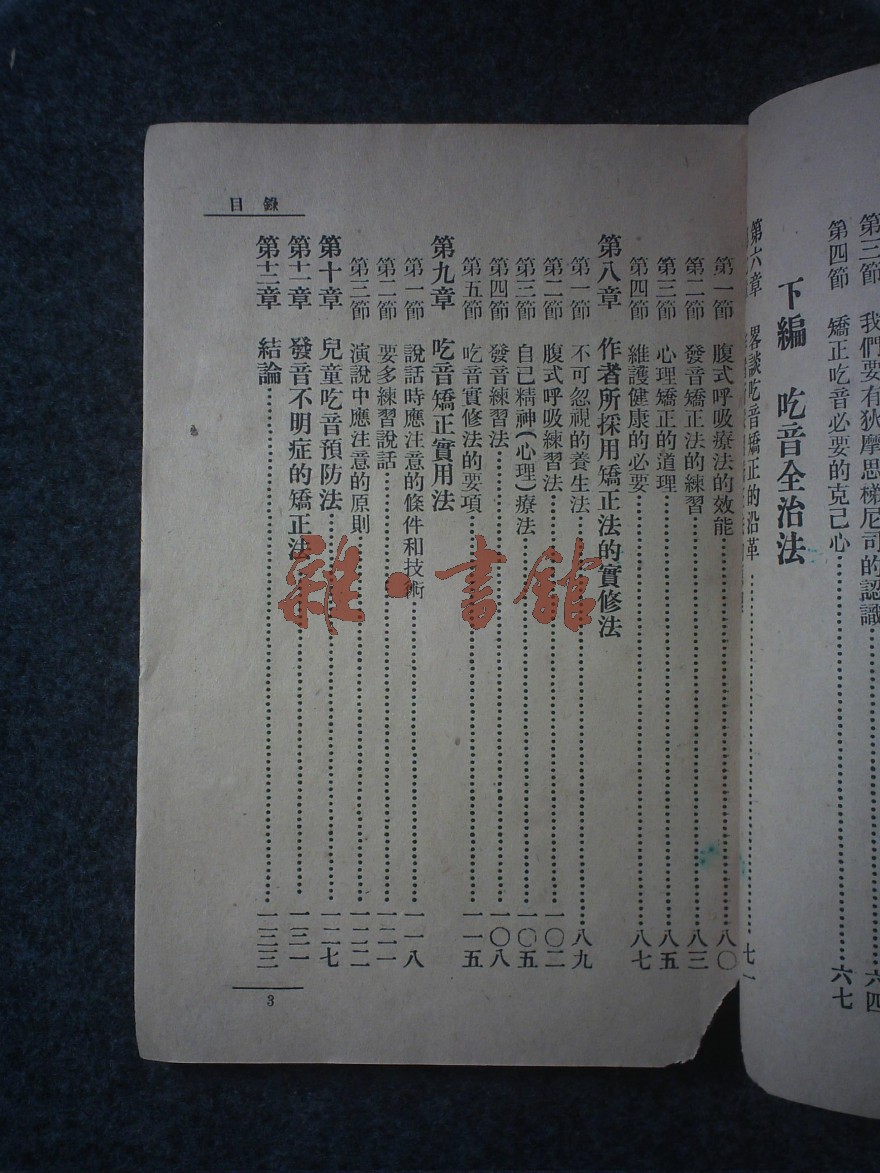 第三節 我們要有狄摩思梯尼司的認識……六四
第四節 矯正吃音必要的克己心……六七
下編 吃音全治法
第六章 畧談吃音矯正的沿革……七一
目錄
第一節 腹式呼吸療法的效能……八〇
第二節 發音矯正法的練習……八三
第三節 心理矯正的道理……八五
第四節 維護健康的必要……八七
第八章 作者所採用矯正法的實修法
第一節 不可忽視的養生法……八九
第二節 腹式呼吸練習法……一〇二
第三節 自己精神(心理)療法……一〇五
第四節 發音練習法……一〇八
第五節 吃音實修法的要項……一一五
第九章 吃音矯正實用法
第一節 說話時應注意的條件和技術……一一八
第二節 要多練習說話……一二一
第三節 演說中應注意的原則……一二二
第十章 兒童吃音預防法……一二七
第十一章 發音不明症的矯正法……一三一
第十二章 結論……一三三
3
雜·書館